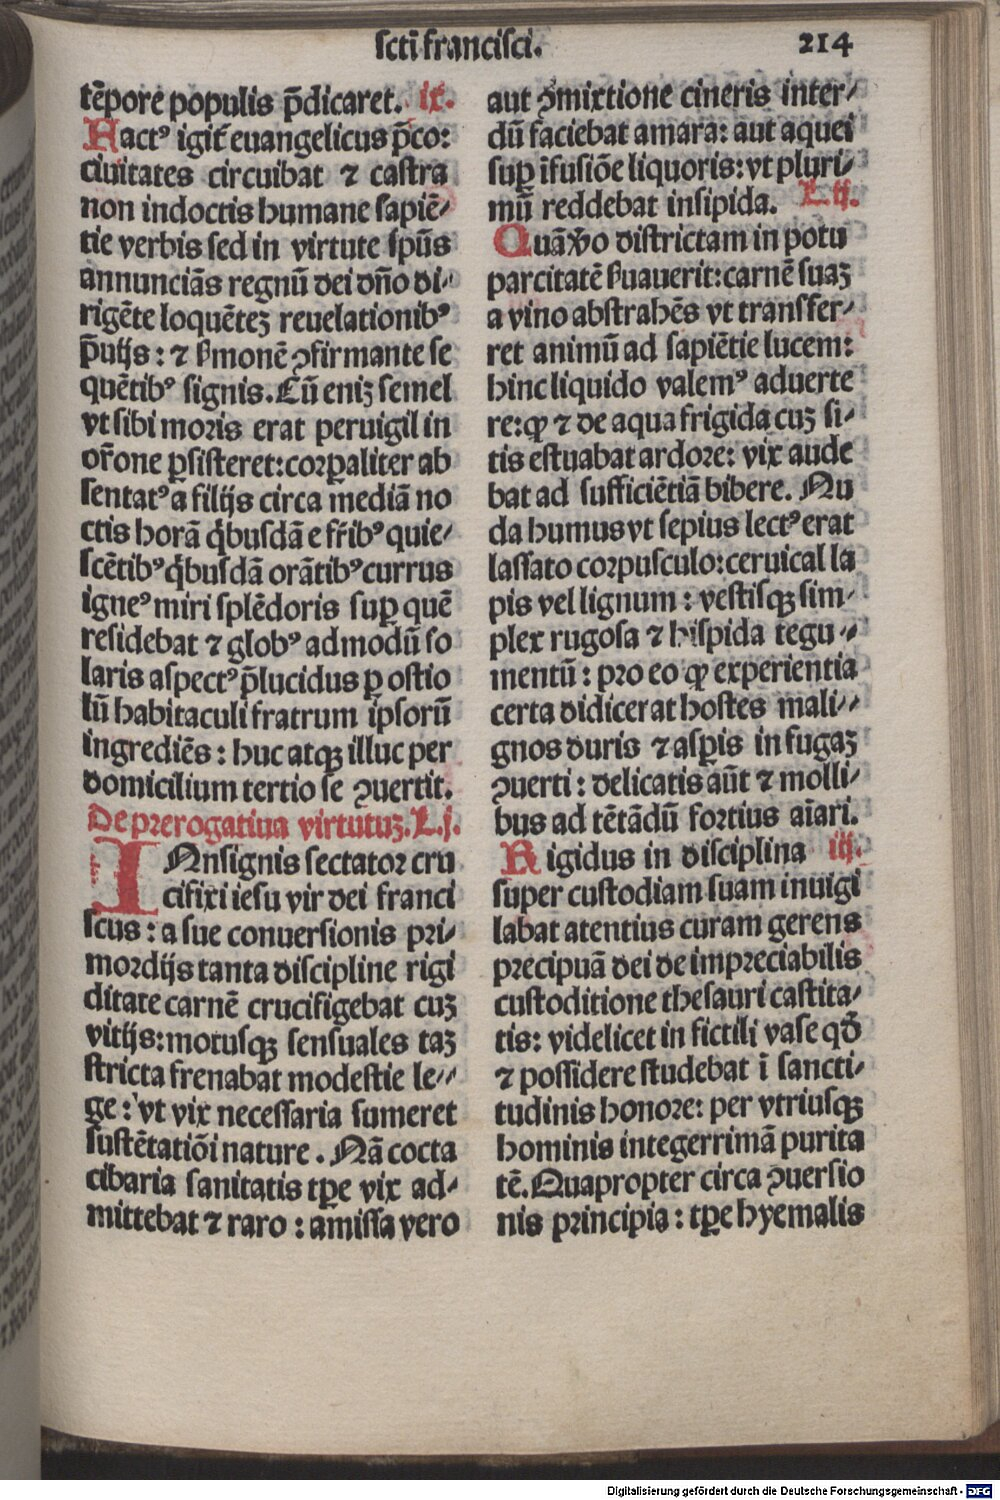 scti francisci.
214
tēpore populis p̄dicaret. ix.
Factꝰ igit̄ euangelicus p̄co:
ciuitates circuibat ⁊ castra
non indoctis humane sapiē/
tie verbis sed in virtute sp̄us
annunciās regnū dei dn̄o di/
rigēte loquēteꝫ reuelationibꝰ
p̄uijs: ⁊ ẜmonē ꝯfirmante se
quētibꝰ signis. Cū eniꝫ semel
vt sibi moris erat peruigil in
or̄one ꝑsisteret: corꝑaliter ab
sentatꝰ a filijs circa mediā no
ctis horā q̇busdā e fr̄ibꝰ quie/
scētibꝰ q̇busdā orātibꝰ currus
igneꝰ miri splēdoris suꝑ quē
residebat ⁊ globꝰ admodū so
laris aspectꝰ p̄lucidus ꝑ ostio
lū habitaculi fratrum ipsorū
ingrediēs: huc atqꝫ illuc per
domicilium tertio se ꝯuertit.
De prerogatiua virtutuꝫ. L.j.
INnsignis sectator cru
cifixi iesu vir dei franci
scus: a sue conuersionis pri/
mordijs tanta discipline rigi
ditate carnē crucifigebat cuꝫ
vitijs: motusqꝫ sensuales taꝫ
stricta frenabat modestie le//
ge: vt vix necessaria sumeret
sustētatiōi nature. Nā cocta
cibaria sanitatis tp̄e vix ad/
mittebat ⁊ raro: amissa vero
aut ꝯmixtione cineris inter/
dū faciebat amara: aut aquei
suꝑ īfusiōe liquoris: vt pluri/
mū reddebat insipida. L.ij.
Quā v̓o districtam in potu
parcitatē ẜuauerit: carnē suaꝫ
a vino abstrahēs vt transfer/
ret animū ad sapiētie lucem:
hinc liquido valemꝰ aduerte
re: ꝙ ⁊ de aqua frigida cuꝫ si/
tis estuabat ardore: vix aude
bat ad sufficiētiā bibere. Nu
da humus vt sepius lectꝰ erat
lassato corpusculo: ceruical la
pis vel lignum: vestisqꝫ sim/
plex rugosa ⁊ hispida tegu//
mentū: pro eo ꝙ experientia
certa didicerat hostes mali//
gnos duris ⁊ asꝑis in fugaꝫ
ꝯuerti: delicatis aūt ⁊ molli/
bus ad tētādū fortius aīari.
Rigidus in disciplina iij.
super custodiam suam inuigi
labat atentius curam gerens
precipuā dei de impreciabilis
custoditione thesauri castita/
tis: videlicet in fictili vase qd̄
⁊ possidere studebat ī sancti/
tudinis honore: per vtriusqꝫ
hominis integerrimā purita
tē. Quapropter circa ꝯuersio
nis principia: tp̄e hyemalis
Digitalisierung gefördert durch die Deutsche Forschungsgemeinschaft - DFG